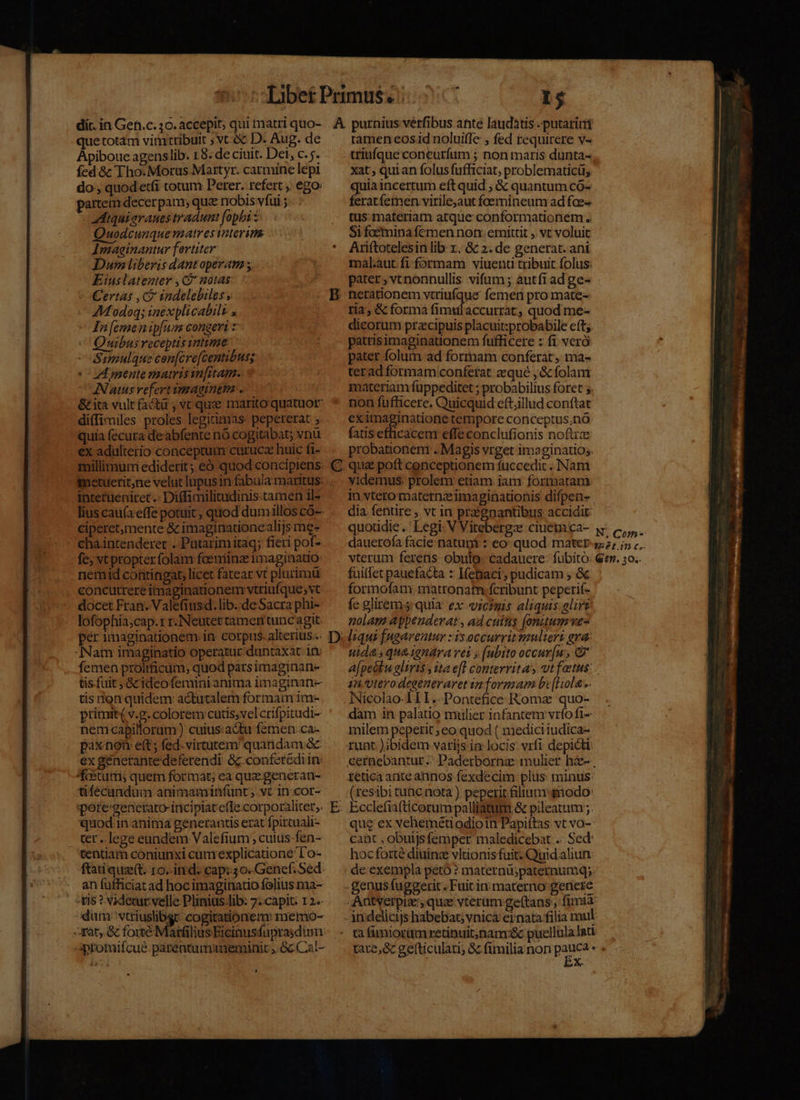 Liber Primus. 15
dit. in Gen. c. 30. accepit, qui matri quo-
que totam vim tribuit, vt & D. Aug. de
Apiboue agens lib. 18. de ciuit. Dei, c. 5.
sed & Tho. Morus Martyr. carmine lepi
do, quod etsi totum Perer. refert, ego
partem decerpam, quæ nobis vsui;
Atqui graues tradunt sophi:
Quodcunque matres interim
Imaginantur fortiter
Dum liberis dant operam,
Eius latenter, & notas
Certas, & indelebiles,
Modoq; inexplicabili,
In semen ipsum congeri:
Quibus receptis intime
Simulque concrescentibus
A mente matris insitam.
Natus refert imaginem.
& ita vult factū, vt quæ marito quatuor
dissimiles proles legitimas pepererat,
quia secura de absente nō cogitabat; vnū
ex adulterio conceptum curucæ huic si-
millimum ediderit; eò quod concipiens
metuerit, ne velut lupus in fabula maritus
interueniret. Dissimilitudinis tamen il-
lius causa esse potuit, quod dum illos cō-
ciperet, mente & imaginatione alijs me-
cha intenderet. Putarim itaq; fieri pos-
se, vt propter solam fœminæ imaginatio
nem id contingat, licet fatear vt plurimū
concurrere imaginationem vtriusque, vt
docet Fran. Valesius d. lib. de Sacra phi-
losophia, cap. 11. Neuter tamen tunc agit
per imaginationem in corpus alterius.
Nam imaginatio operatur duntaxat in
semen prolificum, quod pars imaginan-
tis fuit, & ideo semini anima imaginan-
tis non quidem actutalem formam im-
primit (v.g. colorem cutis, vel crispitudi-
nem capillorum) cuius actu semen ca-
pax non est; sed virtutem quandam &
ex generante deferendi & conferēdi in
fœtum; quem format; ea quæ generan-
ti secundum animam insunt, vt in cor-
pore generato incipiat esse corporaliter,
quod in anima generantis erat spirituali-
ter. lege eundem Valesium, cuius sen-
tentiam coniunxi cum explicatione To-
stati quæst. 10. in d. cap. 30. Genes. Sed
an sufficiat ad hoc imaginatio solius ma-
tris? videtur velle Plinius lib. 7. capit. 12.
dum vtriuslibet cogitationem memo-
rat, & fortè Marsilius Ficinus supra, dum
promiscuè parentum meminit, & Cal-
A purnius versibus ante laudatis. putarim
tamen eos id noluisse, sed requirere v-
triusque concursum; non maris dunta-
xat, qui an solus sufficiat, problematicū,
quia incertum est quid, & quantum cō-
ferat semen virile, aut fœmineum ad fœ-
tus materiam atque conformationem.
Si fœmina semen non emittit, vt voluit
Aristoteles in lib 1. & 2. de generat. ani
mal. aut si formam viuenti tribuit solus
pater, vt nonnullis visum; aut si ad ge-
B nerationem vtriusque semen pro mate-
ria, & forma simul accurrat, quod me-
dicorum præcipuis placuit: probabile est,
patris imaginationem sufficere: si verò
pater solum ad formam conferat, ma-
ter ad formam conferat æquè, & solam
materiam suppeditet; probabilius foret,
non sufficere. Quicquid est, illud constat
ex imaginatione tempore conceptus, nō
satis efficacem esse conclusionis nostræ
probationem. Magis vrget imaginatio,
C quæ post conceptionem succedit. Nam
videmus prolem etiam iam formatam
in vtero maternæ imaginationis dispen-
dia sentire, vt in prægnantibus accidit
quotidie. Legi VVitebergæ ciuem ca-
dauerosa facie natum: eo quod mater
vterum ferens obuio cadauere subitò
fuisset pauefacta: Isenaci, pudicam, &
formosam matronam scribunt peperis-
se glirem; quia ex vicinis aliquis gliri
nolam appenderat, ad cuius sonitum re-
D liqui fugarentur: is occurrit mulieri gra
uidæ, quæ ignara rei, subito occursu, &
aspectu gliris, ita est conterrita, vt fœtus
in vtero degeneraret in formam bestiolæ.
Nicolao III. Pontefice Romæ quo-
dam in palatio mulier infantem vrso si-
milem peperit; eo quod (medici iudica-
runt) ibidem varijs in locis vrsi depicti
cernebantur. Paderbornæ mulier hæ-
retica ante annos sexdecim plus minus
(res ibi tunc nota) peperit filium modo
E Ecclesiasticorum palliatum & pileatum;
que ex vehemēti odio in Papistas vt vo-
cant, obuijs semper maledicebat. Sed
hoc fortè diuinæ vltionis fuit. Quid aliun
de exempla peto? maternū, paternumq;
genus suggerit. Fuit in materno genere
Antverpiæ, quæ vterum gestans, simiā
in delicijs habebat; vnica ei nata filia mul
ta simiorum retinuit, nam & puellula lati
tare, & gesticulari, & similia non pauca.
Ex
N. Com-
ment. in c.
Gen. 30.